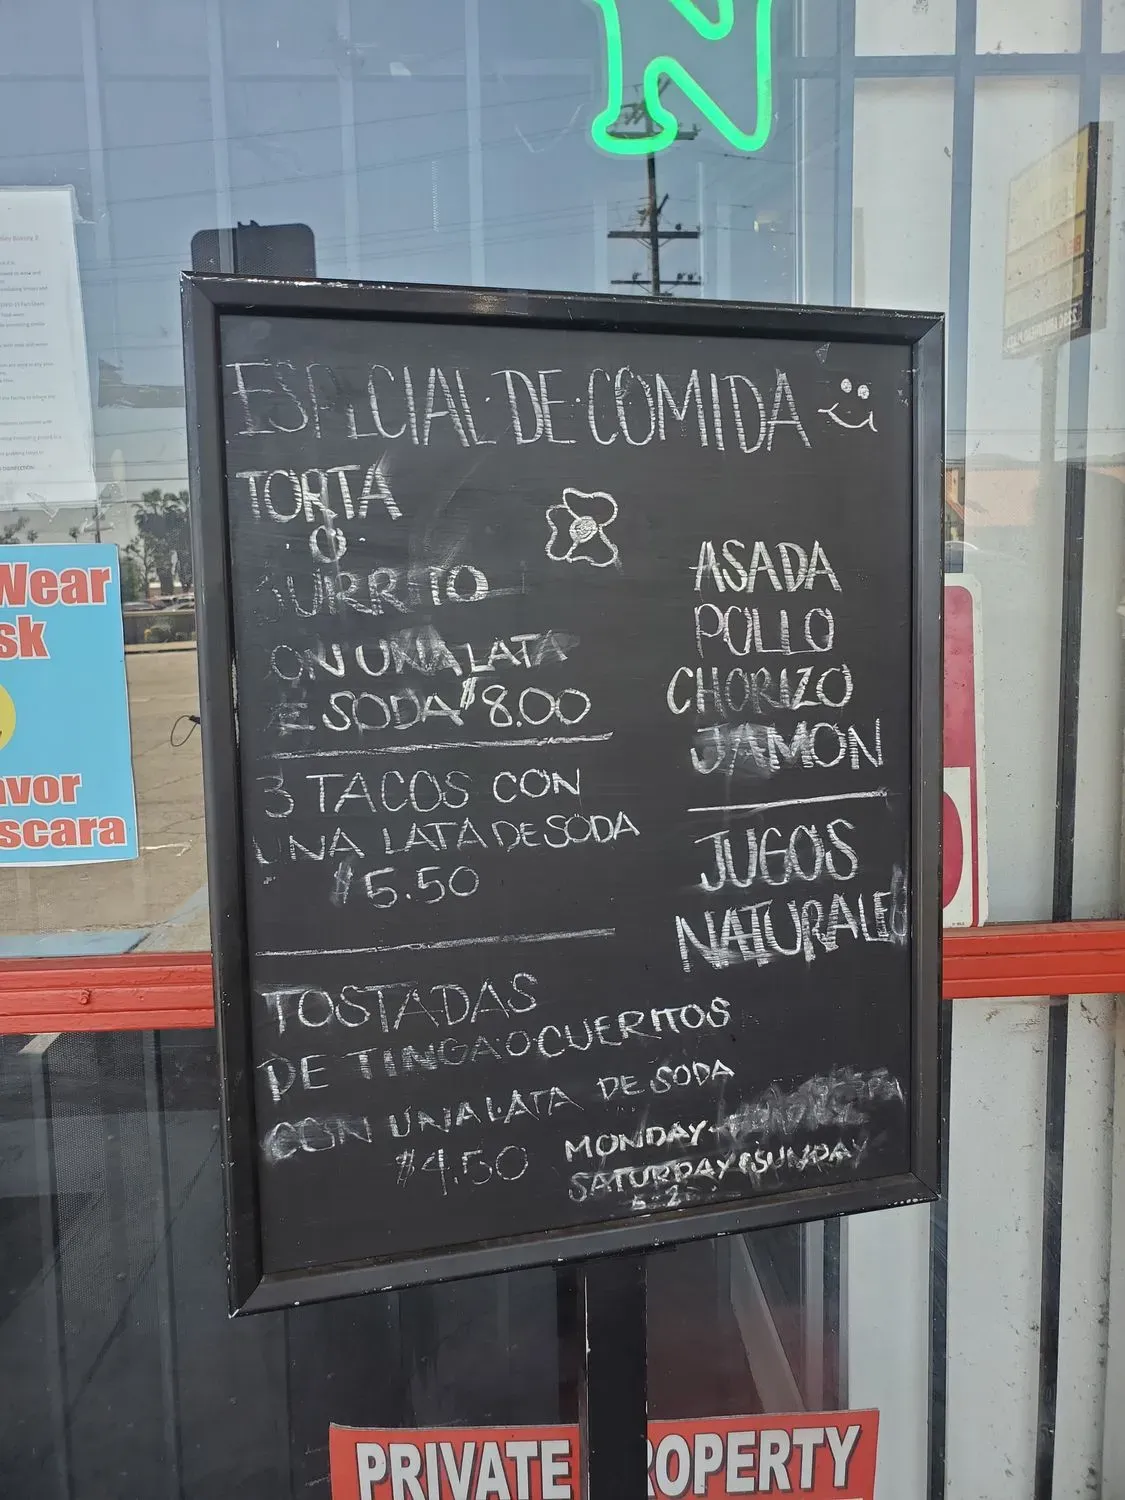 N
ESPECIAL·DE·COMIDA
TORTA
·O·
BURRITO
ON UNA LATA
E SODA $8.00
3 TACOS CON
UNA LATA DE SODA
$5.50
TOSTADAS
DE TINGA O CUERITOS
CON UNA LATA DE SODA
$4.50
ASADA
POLLO
CHORIZO
JAMON
JUGOS
NATURALES
MONDAY-
SATURDAY & SUNDAY
Wear
sk
avor
scara
PRIVATE ROPERTY